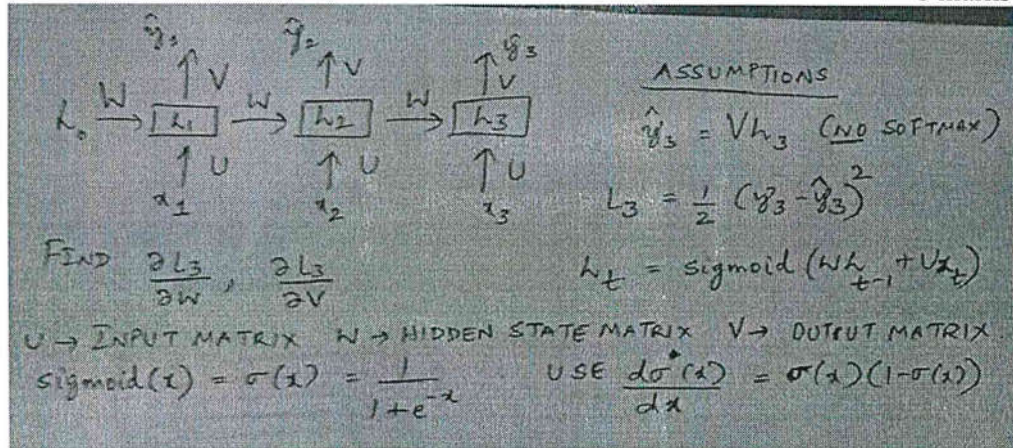 ŷ₁ ŷ₂ ŷ₃
V V V
h₀ W h₁ W h₂ W h₃
U U U
x₁ x₂ x₃
ASSUMPTIONS
ŷ₃ = Vh₃ (NO SOFTMAX)
L₃ = 1/2 (y₃-ŷ₃)²
h_t = sigmoid (Wh_{t-1} + Ux_t)
FIND ∂L₃/∂W , ∂L₃/∂V
U → INPUT MATRIX W → HIDDEN STATE MATRIX V → OUTPUT MATRIX.
sigmoid(x) = σ(x) = 1/(1+e^{-x}) USE dσ(x)/dx = σ(x)(1-σ(x))